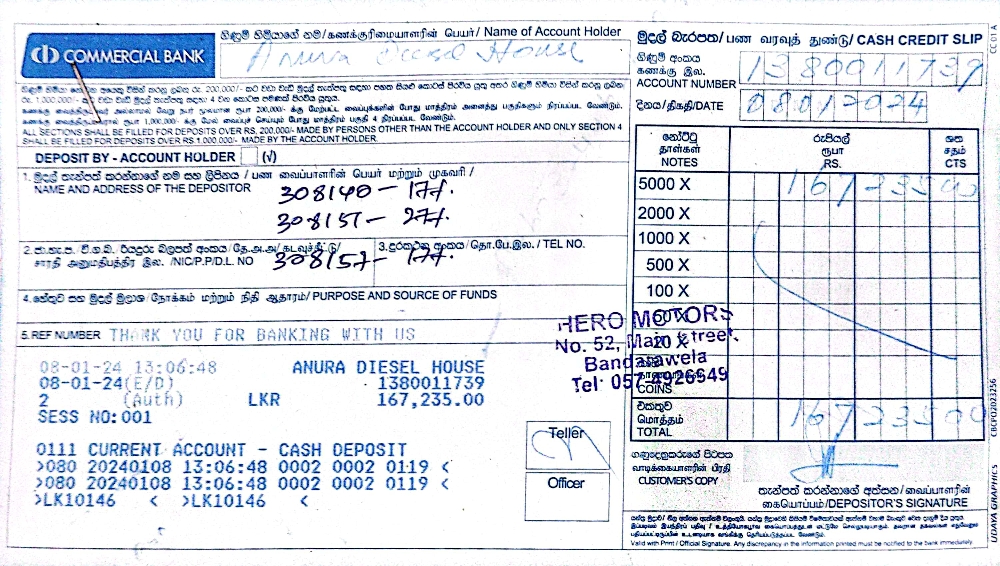 COMMERCIAL BANK
ගිණුම් හිමියාගේ නම/கணக்குரிமையாளரின் பெயர்/ Name of Account Holder
Anura Diesel House
මුදල් බැරපත/பண வரவுத் துண்டு/ CASH CREDIT SLIP
CC 01 A
ගිණුම් අංකය
கணக்கு இல.
ACCOUNT NUMBER
1380011739
දිනය/திகதி/DATE
08012024
ALL SECTIONS SHALL BE FILLED FOR DEPOSITS OVER RS, 200,000/- MADE BY PERSONS OTHER THAN THE ACCOUNT HOLDER AND ONLY SECTION 4
SHALL BE FILLED FOR DEPOSITS OVER RS 1,000,000/- MADE BY THE ACCOUNT HOLDER
DEPOSIT BY - ACCOUNT HOLDER (√)
1. මුදල් තැන්පත් කරන්නාගේ නම සහ ලිපිනය / பண வைப்பாளரின் பெயர் மற்றும் முகவரி /
NAME AND ADDRESS OF THE DEPOSITOR
308140 - 177.
308151 - 277.
සාරදි அனுமதிபத்திர இல. /NIC/P.P/D.L. NO
308157 - 177.
3. දුරකථන අංකය/தொ.பே.இல. / TEL NO.
4. හේතුව සහ මුදල් මූලාශ්‍ර/நோக்கம் மற்றும் நிதி ஆதாரம்/ PURPOSE AND SOURCE OF FUNDS
5. REF NUMBER THANK YOU FOR BANKING WITH US
08-01-24 13:06:48 ANURA DIESEL HOUSE
08-01-24(E/D) 1380011739
2 (Auth) LKR 167,235.00
SESS NO:001
0111 CURRENT ACCOUNT - CASH DEPOSIT
>080 20240108 13:06:48 0002 0002 0119 <
>080 20240108 13:06:48 0002 0002 0119 <
>LK10146 < >LK10146 <
Teller
Officer
නෝට්ටු
தாள்கள்
NOTES
රුපියල්
ரூபா
RS.
ශත
சதம்
CTS
5000 X 167235 00
2000 X
1000 X
500 X
100 X
50 X
20 X
COINS
HERO MOTORS
No. 52, Main Street,
Bandarawela
Tel: 057-4926549
එකතුව
மொத்தம்
TOTAL
167235 00
ගනුදෙනුකරුගේ පිටපත
வாடிக்கையாளரின் பிரதி
CUSTOMER'S COPY
තැන්පත් කරන්නාගේ අත්සන/வைப்பாளரின்
கையொப்பம்/DEPOSITOR'S SIGNATURE
Valid with Print / Official Signature. Any discrepancy in the information printed must be notified to the bank immediately.
CBCP02023256
UDAYA GRAPHICS